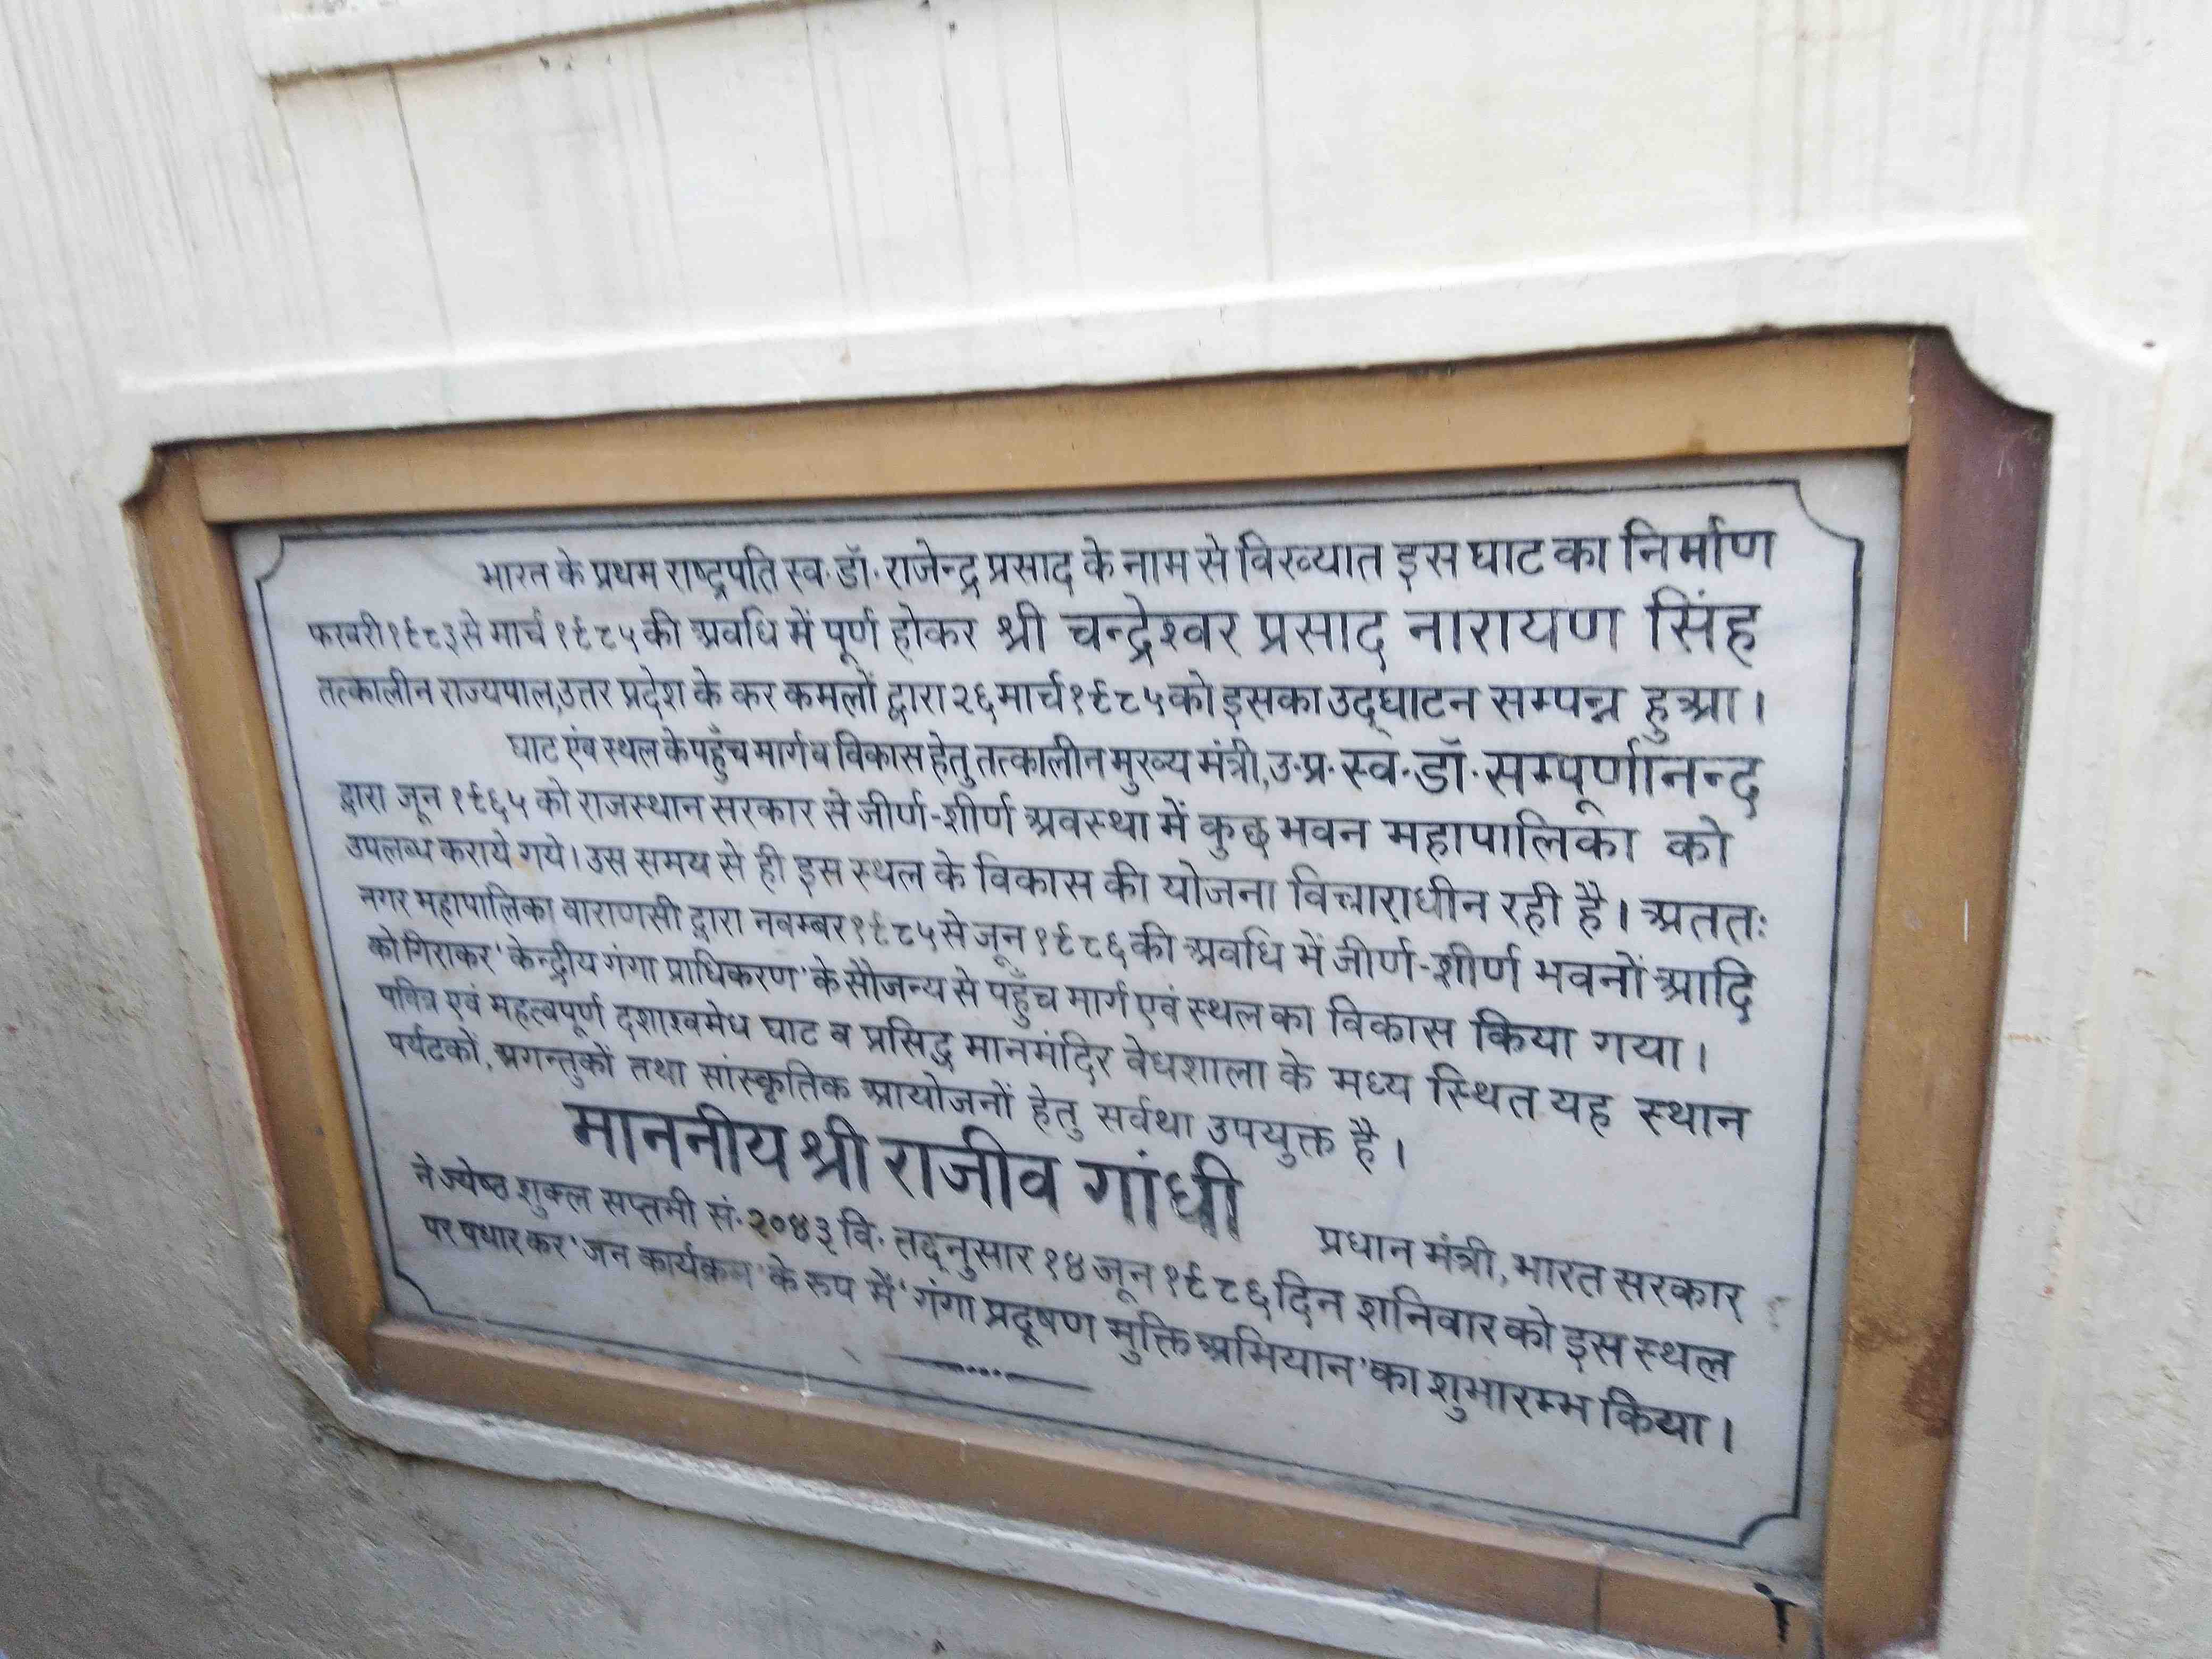 भारत के प्रथम राष्ट्रपति स्व. डॉ. राजेन्द्र प्रसाद के नाम से विख्यात इस घाट का निर्माण
फरवरी १९८३ से मार्च १९८५ की अवधि में पूर्ण होकर श्री चन्द्रेश्वर प्रसाद नारायण सिंह
तत्कालीन राज्यपाल, उत्तर प्रदेश के कर कमलों द्वारा २६ मार्च १९८५ को इसका उद्घाटन सम्पन्न हुआ।
घाट एंव स्थल के पहुँच मार्ग व विकास हेतु तत्कालीन मुख्य मंत्री, उ.प्र. स्व. डॉ. सम्पूर्णानन्द
द्वारा जून १९६५ को राजस्थान सरकार से जीर्ण-शीर्ण अवस्था में कुछ भवन महापालिका को
उपलब्ध कराये गये। उस समय से ही इस स्थल के विकास की योजना विचाराधीन रही है। अततः
नगर महापालिका वाराणसी द्वारा नवम्बर १९८५ से जून १९८६ की अवधि में जीर्ण-शीर्ण भवनों आदि
को गिराकर 'केन्द्रीय गंगा प्राधिकरण' के सौजन्य से पहुँच मार्ग एवं स्थल का विकास किया गया।
पवित्र एवं महत्वपूर्ण दशाश्वमेध घाट व प्रसिद्ध मानमंदिर वेधशाला के मध्य स्थित यह स्थान
पर्यटकों, अगन्तुकों तथा सांस्कृतिक आयोजनों हेतु सर्वथा उपयुक्त है।
माननीय श्री राजीव गांधी प्रधान मंत्री, भारत सरकार
ने ज्येष्ठ शुक्ल सप्तमी सं. २०४३ वि. तद्नुसार १४ जून १९८६ दिन शनिवार को इस स्थल
पर पधार कर 'जन कार्यक्रम' के रूप में 'गंगा प्रदूषण मुक्ति अभियान' का शुभारम्भ किया।